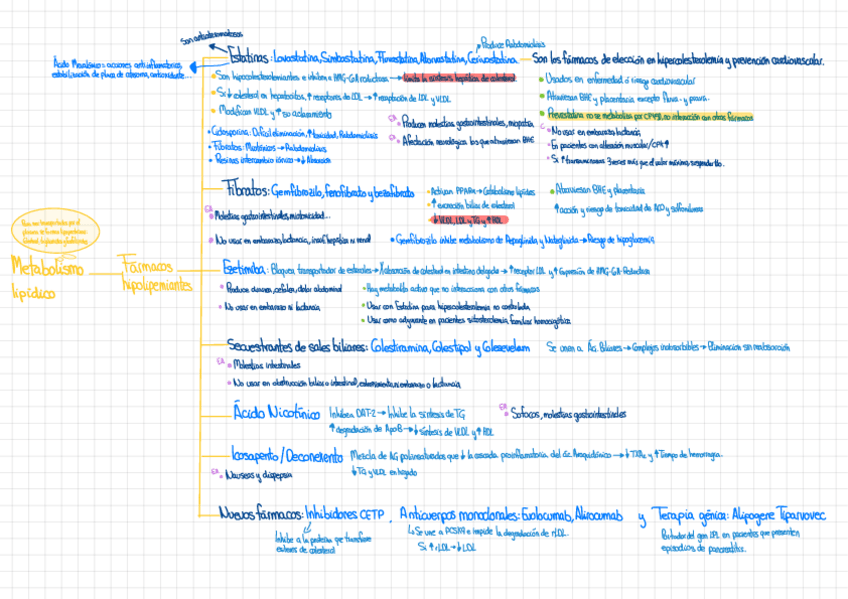 Son antiateromatosos
Produce Rabdomiolisis
Estatinas: Lovastatina, Simbastatina, Fluvastatina, Atorvastatina, Cerivastatina
Son los fármacos de elección en hipercolesterolemia y prevención cardiovascular.
Ácido Mevalónico: acciones antiinflamatorias,
estabilización de placa de ateroma, antioxidante...
Son hipocolesterolemiantes e inhiben HMG-CoA reductasa → limita la síntesis hepática de colesterol
Si ↓ colesterol en hepatocitos, ↑ receptores de LDL → ↑ recaptación de LDL y VLDL
Modifican VLDL y ↑ su aclaramiento
Usados en enfermedad o riesgo cardiovascular
Atraviesan BHE y placentaria excepto Fluva. y prava.
Pravastatina no se metaboliza por CYP450, no interacción con otros fármacos
Producen molestias gastrointestinales, miopatía
Afectación neurológica los que atraviesan BHE
Ciclosporina: Dificil eliminación, ↑ toxicidad, Rabdomiolisis
Fibratos: Miotóxicos → Rabdomiolisis
Resinas intercambio iónico → ↓ Absorción
No usar en embarazo, lactancia
En pacientes con alteración muscular/CPK ↑
Si ↑ transaminasas 3 veces más que el valor máximo, suspenderlo.
Fibratos: Gemfibrozilo, fenofibrato y bezafibrato
Activan PPARα → Catabolismo lípidos
↑ excreción biliar de colesterol
↓ VLDL, LDL y TG y ↑ HDL
Atraviesan BHE y placentaria
↑ acción y riesgo de toxicidad de ACO y sulfonilureas
Molestias gastrointestinales, miotoxicidad...
No usar en embarazo, lactancia, insuf. hepática ni renal
Gemfibrozilo inhibe metabolismo de Repaglinida y Nateglinida → Riesgo de hipoglucemia
Metabolismo
lipídico
Fármacos
hipolipemiantes
Ezetimiba: Bloquea transportador de esteroles → ↓ absorción de colesterol en intestino delgado → ↑ receptor LDL y ↑ Expresión de HMG-CoA-Reductasa
Produce diarrea, cefalea, dolor abdominal
No usar en embarazo ni lactancia
Hay metabolito activo que no interacciona con otros fármacos
Usar con Estatina para hipercolesterolemia no controlada
Usar como adyuvante en pacientes sitosterolemia familiar homocigótica
Secuestrantes de sales biliares: Colestiramina, Colestipol y Colesevelam
Se unen a Ác. Biliares → Complejos inabsorbibles → Eliminación sin reabsorción
Molestias intestinales
No usar en obstrucción biliar o intestinal, estreñimiento, embarazo o lactancia
Ácido Nicotínico
Inhiben DAT-2 → Inhibe la síntesis de TG
↑ degradación de ApoB → ↓ síntesis de VLDL y ↑ HDL
Sofocos, molestias gastrointestinales
Icosapento / Doconexento
Mezcla de AG poliinsaturados que ↓ la cascada proinflamatoria del ác Araquidónico → ↓ TXA₂ y ↑ Tiempo de hemorragia.
↓ TG y VLDL en hígado
Nauseas y dispepsia
Nuevos fármacos: Inhibidores CETP , Anticuerpos monoclonales: Evolocumab, Alirocumab y Terapia génica: Alipogene Tiparvovec
Inhibe a la proteína que transfiere
esteres de colesterol
Se une a PCSK9 e impide la degradación de rLDL.
Si ↑ rLDL → ↓ LDL
del gen LPL en pacientes que presenten
episodios de pancreatitis.